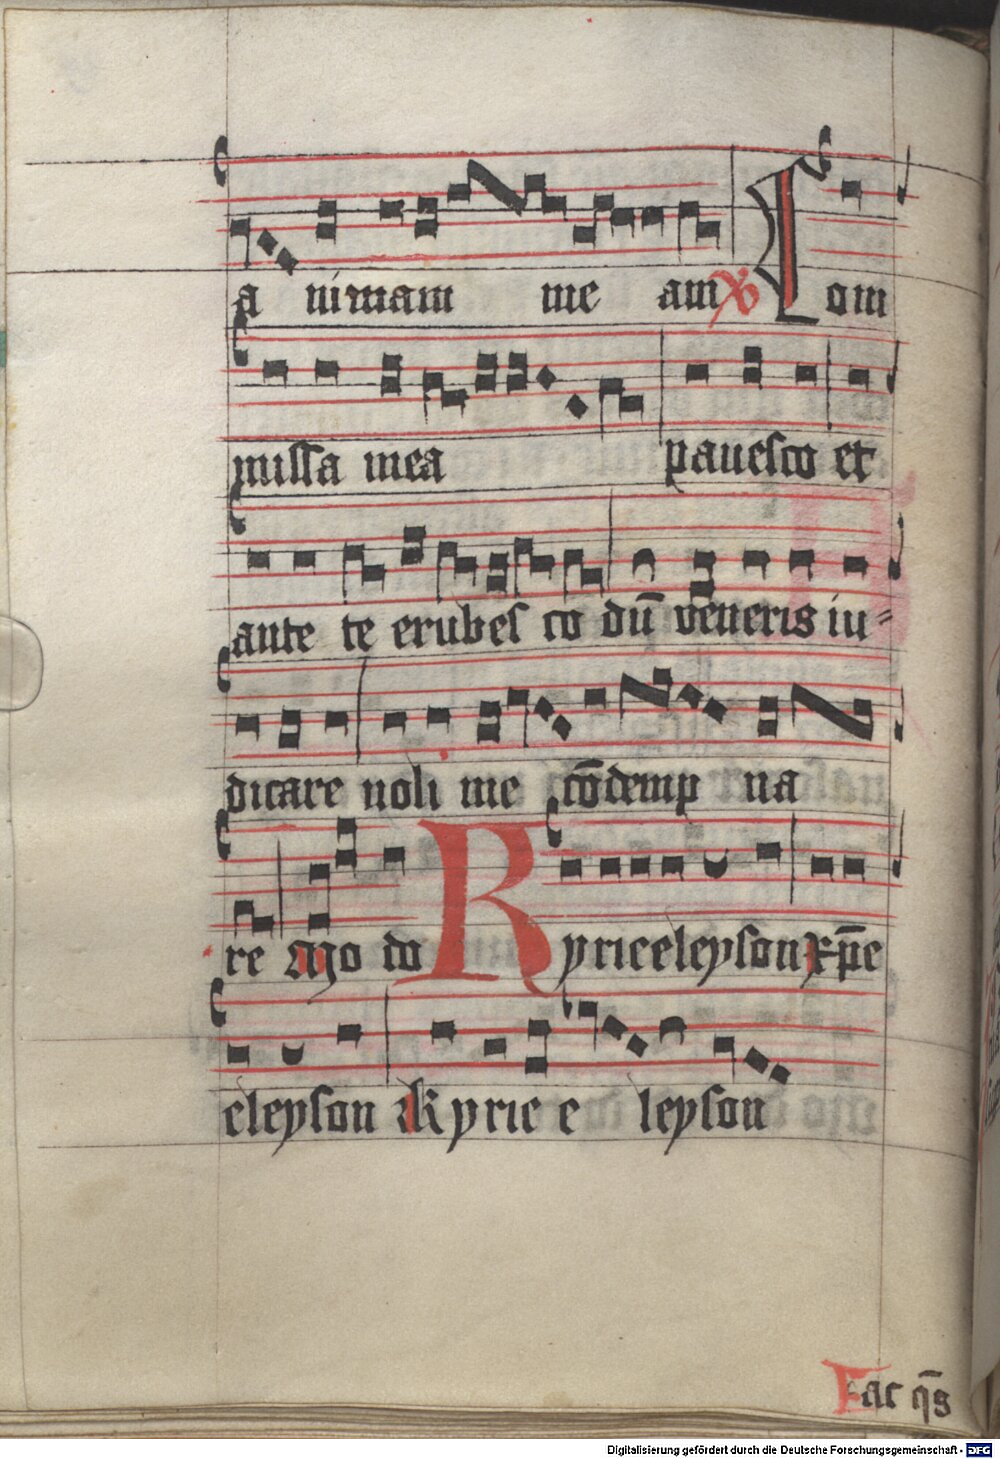 a nimam me am ℣ Com
missa mea pauesco et
ante te erubesco dū veneris iu⸗
dicare noli me cōdemp na
re Quo do Kyrieeleyson xp̄e
eleyson Kyrie e leyson
Fac q̄s
Digitalisierung gefördert durch die Deutsche Forschungsgemeinschaft - DFG